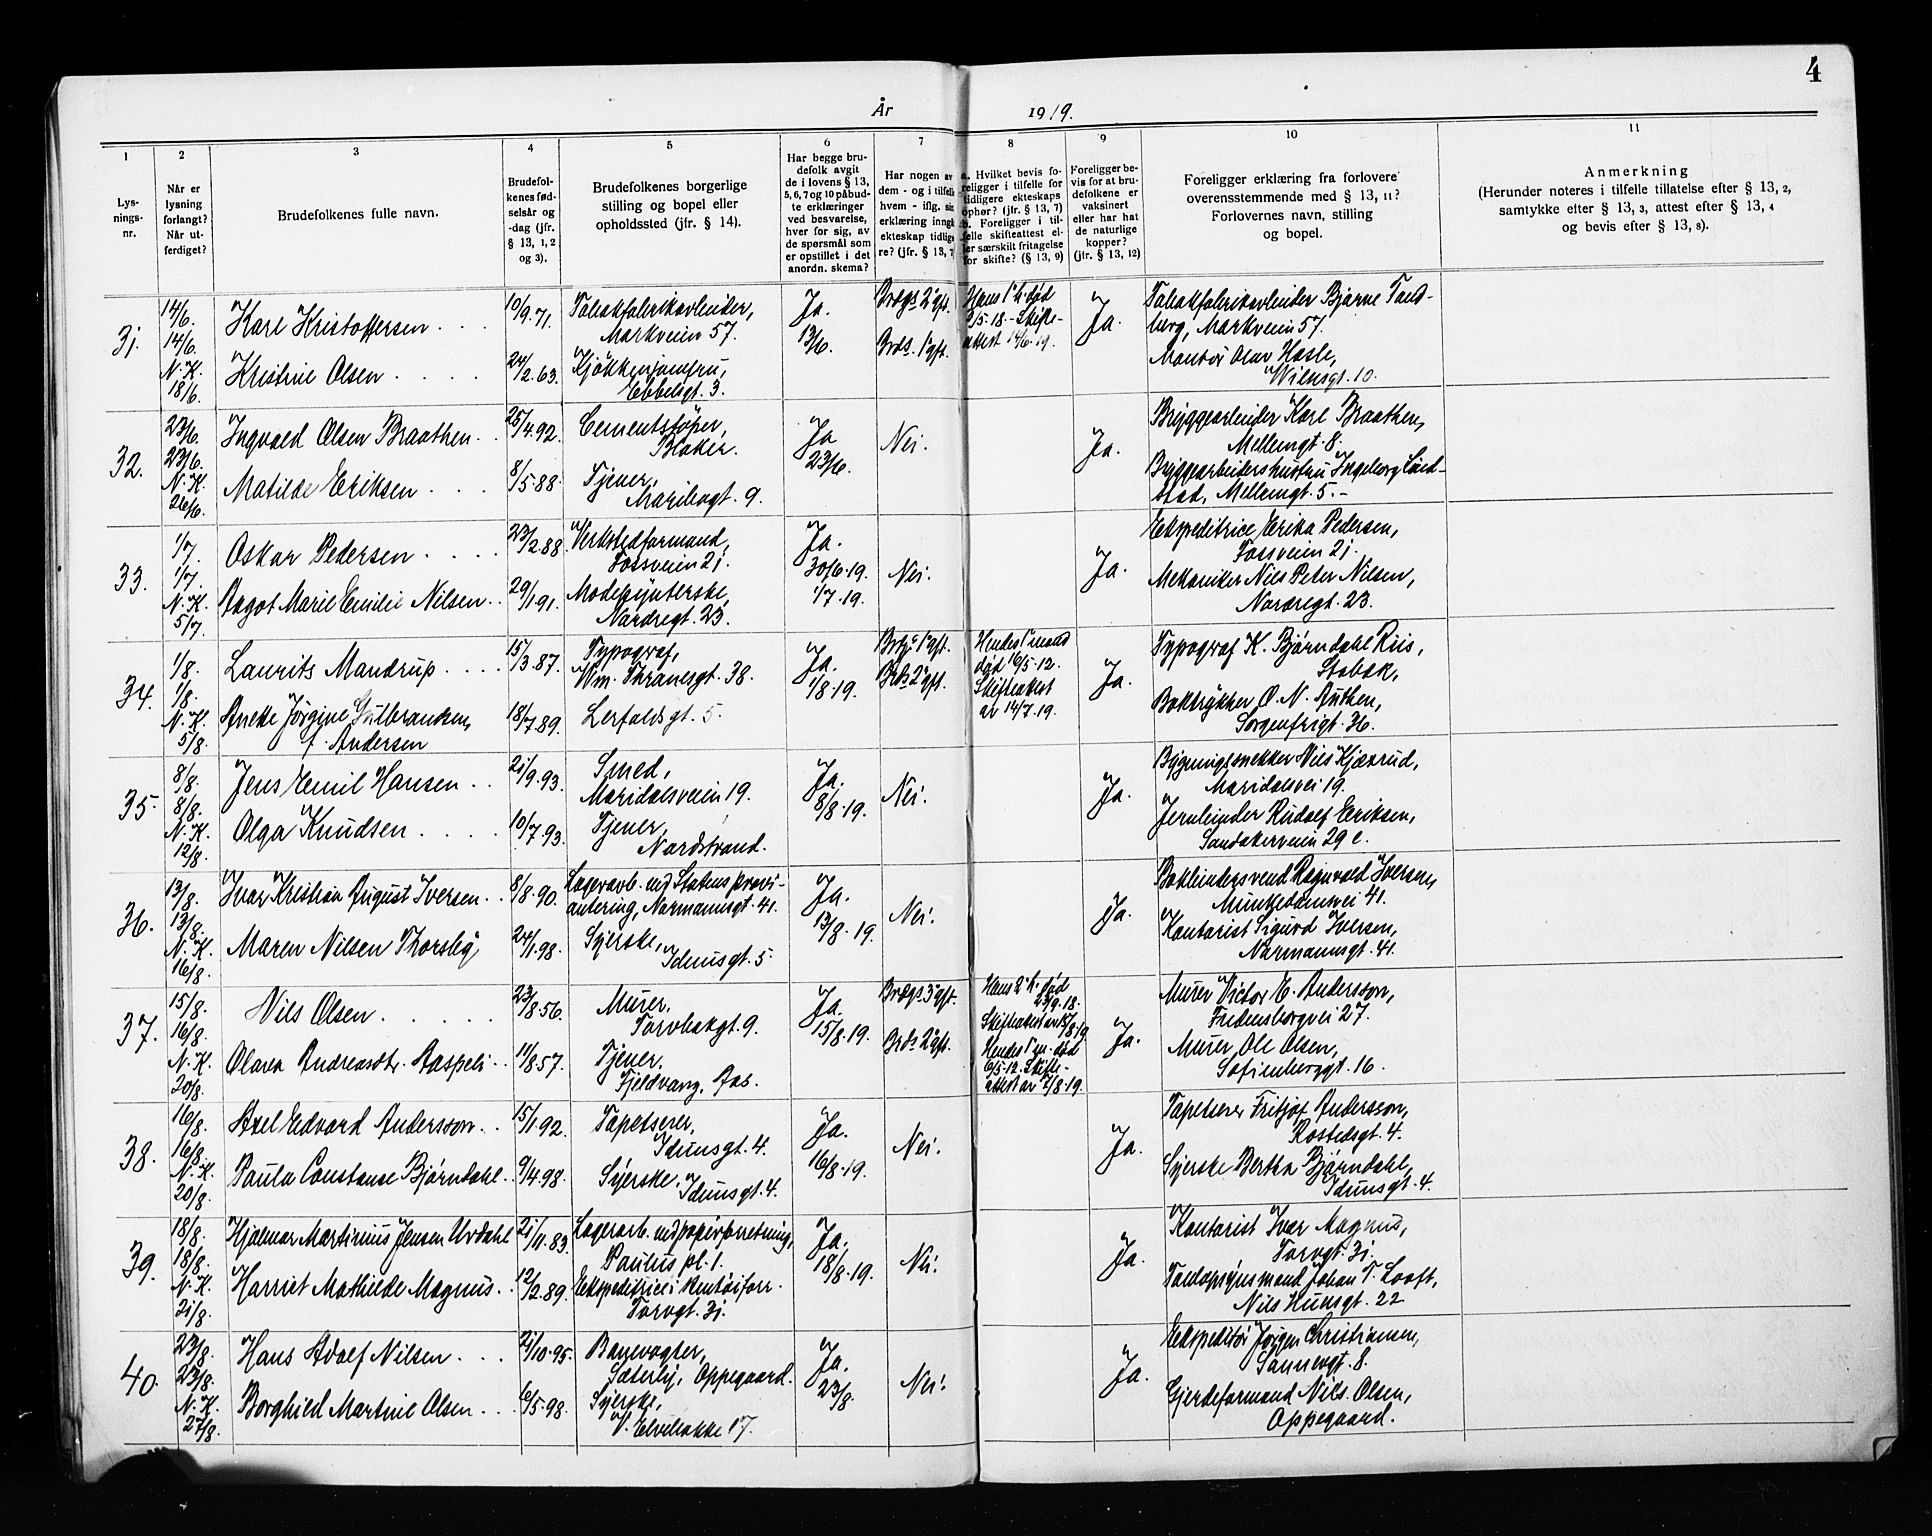 4
År 1919.
1 2 3 4 5 6 7 8 9 10 11
Lys-
nings-
nr.
Når er
lysning
forlangt?
Når ut-
ferdiget?
Brudefolkenes fulle navn.
Brudefol-
kenes fød-
selsår og
-dag (jfr.
§ 13, 1, 2
og 3).
Brudefolkenes borgerlige
stilling og bopel eller
opholdssted (jfr. § 14).
Har begge bru-
defolk avgit
de i lovens § 13,
5, 6, 7 og 10 påbud-
te erklæringer
ved besvarelse,
hver for sig, av
de spørsmål som
er opstillet i det
anordn. skema?
Har nogen av
dem - og i tilfelle
hvem - iflg. sin
erklæring inngåt
ekteskap tidlige-
re? (jfr. § 13, 7
a. Hvilket bevis fo-
religger i tilfelle for
tidligere ekteskaps
ophør? (jfr. § 13, 7)
b. Foreligger i til-
felle skifteattest el-
ler særskilt fritagelse
for skifte? (§ 13, 9)
Foreligger be-
vis for at bru-
defolkene er
vaksinert
eller har hat
de naturlige
kopper?
(jfr. § 13, 12)
Foreligger erklæring fra forlovere
overensstemmende med § 13, 11?
Forlovernes navn, stilling
og bopel.
Anmerkning
(Herunder noteres i tilfelle tillatelse efter § 13, 2,
samtykke efter § 13, 3, attest efter § 13, 4
og bevis efter § 13, 8).
31.
14/6.
14/6.
N. K.
18/6.
Karl Kristoffersen
Kristine Olsen
10/9.71.
24/2.63.
Tobakfabrikarbeider,
Markveien 57.
Kjøkkenjomfru,
Ebbelsgt. 3.
Ja.
13/6.
Brdgs 2° gft.
Brds. 1° gft.
Hans 1° h. død
2/5-18. - Skifte-
attest 14/6.19.
Ja.
Tobakfabrikarbeider Bjarne Tand-
berg, Markveien 57.
Montør Olav Hasle,
Wilsesgt. 10.
32.
23/6.
23/6.
N. K.
26/6.
Ingvald Olsen Braathen
Matilde Eriksen
25/4.92.
8/5.88.
Cementstøper,
Blaker.
Tjener,
Maribogt. 9.
Ja
23/6.
Nei.
Ja.
Bryggearbeider Karl Braathen,
Mellemgt. 8.
Bryggearbeidershustru Ingeborg Lind-
stad, Mellemgt. 5.-
33.
1/7.
1/7.
N. K.
5/7.
Oskar Pedersen
Aagot Marie Emilie Nilsen
23/2.88
29/1.91.
Verkstedformand,
Fossveien 21.
Modepynterske,
Nordregt. 23.
Ja.
30/6.19.
1/7.19.
Nei.
Ja.
Ekspeditrice Erika Pedersen,
Fossveien 21.
Mekaniker Nils Peter Nilsen,
Nordregt. 23.
34.
1/8.
1/8.
N. K.
5/8.
Laurits Mandrup
Anette Jörgine Gulbrandsen,
f. Andersen
15/3.87.
18/7.89.
Typograf,
Wm. Thranesgt. 38.
Lerfaldsgt. 5.
Ja.
1/8.19.
Brdg. 1° gft.
Brds 2° gft.
Hendes 1° mand
død 16/5.12.
Skifteattest
av 14/7.19.
Ja.
Typograf K. Bjørndahl Riis,
Stabæk,
Boktrykker O. N. Authen,
Sorgenfrigt. 36.
35.
8/8.
8/8.
N. K.
12/8.
Jens Emil Hansen
Olga Knudsen
21/9.93.
10/7.93.
Smed,
Maridalsveien 19.
Tjener,
Nordstrand.
Ja.
8/8.19.
Nei.
Ja.
Bygningssnekker Nils Kjærrud,
Maridalsvei 19.
Jernbinder Rudolf Eriksen,
Sandakerveien 29 c.
36.
13/8.
13/8.
N. K.
16/8.
Ivar Kristian August Iversen
Maren Nilsen Thorsby
8/8.90.
24/1.98.
Lagerarb. ved Statens provi-
antering, Normannsgt. 41.
Syerske,
Idunsgt. 5.
Ja.
13/8.19.
Nei.
Ja.
Bokbindersvend Ragnvald Iversen,
Munkedamsvei 41.
Kontorist Sigurd Iversen,
Normannsgt. 41.
37.
15/8.
16/8.
N. K.
20/8.
Nils Olsen
Olava Andreasdtr. Aaspeli
23/8.56.
11/8.57.
Murer,
Torvbakgt. 9.
Tjener,
Fjeldvang, Aas.
Ja.
15/8.19.
Brdgs 3° gft.
Brds 2° gft.
Hans 2° h. død
23/9.18.
Skifteattest av 15/8.19.
Hendes 1° m. død
6/5.12. Skifte-
attest av 7/8.19.
Ja.
Murer Victor E. Andersson,
Fredensborgvei 27.
Murer Ole Olsen,
Sofienberggt. 16.
38.
16/8.
16/8.
N. K.
20/8.
Axel Edvard Andersson
Paula Constanse Bjørndahl
15/1.92.
9/4.98.
Tapetserer,
Idunsgt. 4.
Syerske, Idunsgt. 4.
Ja.
16/8.19.
Nei.
Ja.
Tapetserer Fritjof Andersson,
Rostedsgt. 4.
Syerske Bertha Bjørndahl,
Idunsgt. 4.
39.
18/8.
18/8.
N. K.
21/8.
Hjalmar Martinius Jensen Urdahl
Harriet Mathilde Magnus
21/11.83.
12/2.89.
Lagerarb. ved papirforretning,
Paulus pl. 1.
Ekspeditrice i kentøiforr.
Torvgt. 31.
Ja.
18/8.19.
Nei.
Ja.
Kontorist Ivar Magnus,
Torvgt. 31.
Toldopsynsmand Johan T. Looft,
Nils Huusgt. 22
40.
23/8.
23/8.
N. K.
27/8.
Hans Adolf Nilsen
Borghild Martine Olsen
21/10.95.
6/5.98.
Banevogter,
Sæterby, Oppegaard.
Syerske,
V. Elvebakke 17.
Ja.
23/8.
Nei.
Ja.
Ekspeditør Jørgen Christiansen,
Sannergt. 8.
Gjerdeformand Nils Olsen,
Oppegaard.